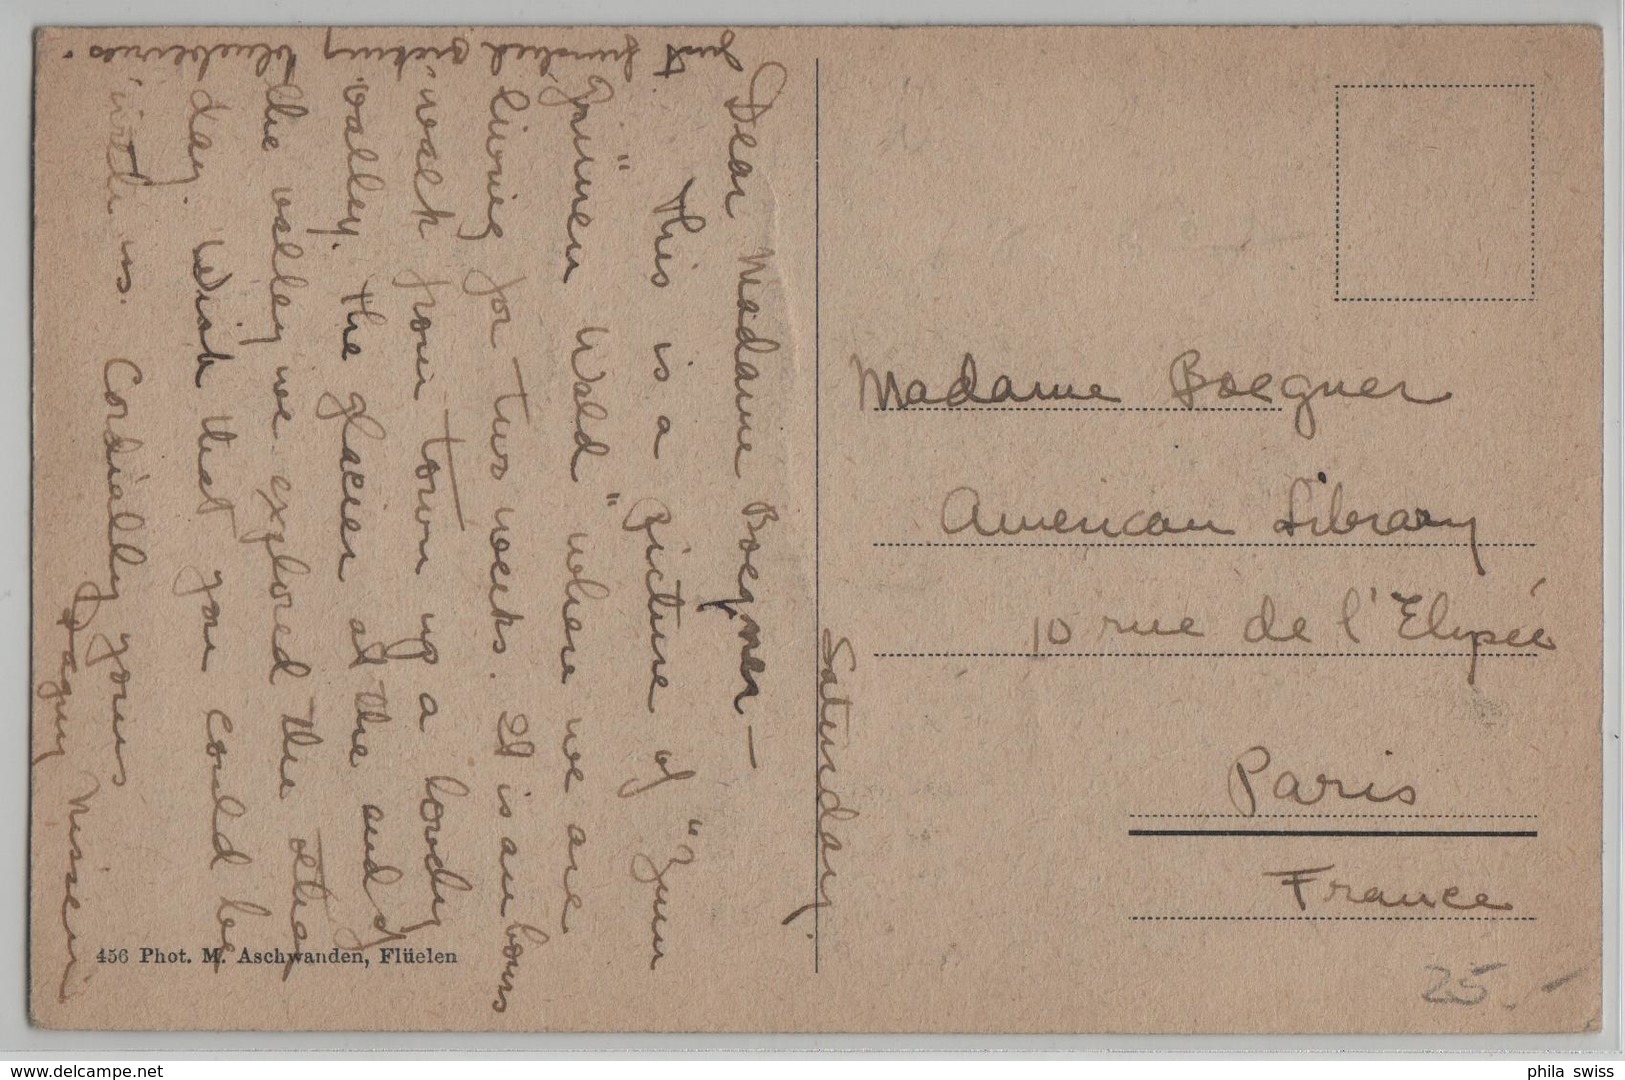 Saturday.
Dear Madame Boegner —
This is a picture of "Zum
Grünen Wald" where we are
living for two weeks. It is an hours
walk from town up a lovely
valley. The glacier at the end of
the valley we explored the other
day. Wish that you could be
with us. Cordially yours
Dagny Nissen
Just finished picking blueberries.
Madame Boegner
American Library
10 rue de l'Elysée
Paris
France
456 Phot. M. Aschwanden, Flüelen
25.-
delcampe.net
phila_swiss